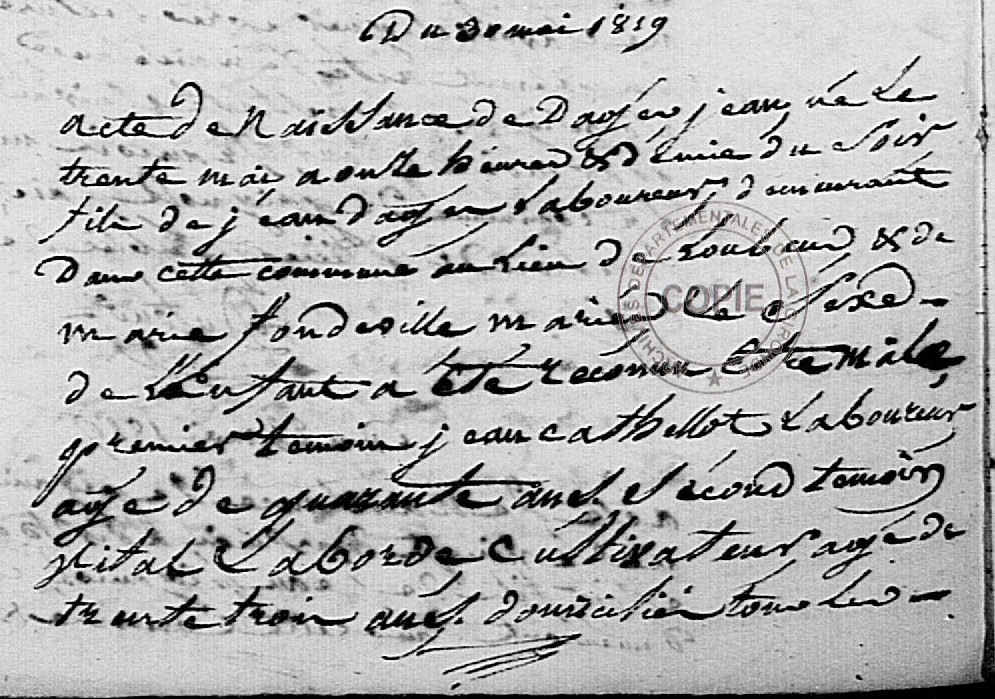 Du 30 mai 1819
acte de Naissance de Dagér jean né Le
trente mai a onse heures & demie du Soir
fils de jéan Laboureur demeurant
Dans cette commune au Lieu de & de
marie fondeville mariés Le Sexe
de L'enfant a été reconnu Etre male
premier temoin jean Cathellot Laboureur
agé de quarante ans. Second temoin
vital Laborde Cultivateur agé de
trente trois ans. domiciliés tous les
ARCHIVES DEPARTEMENTALES DE LA GIRONDE
COPIE